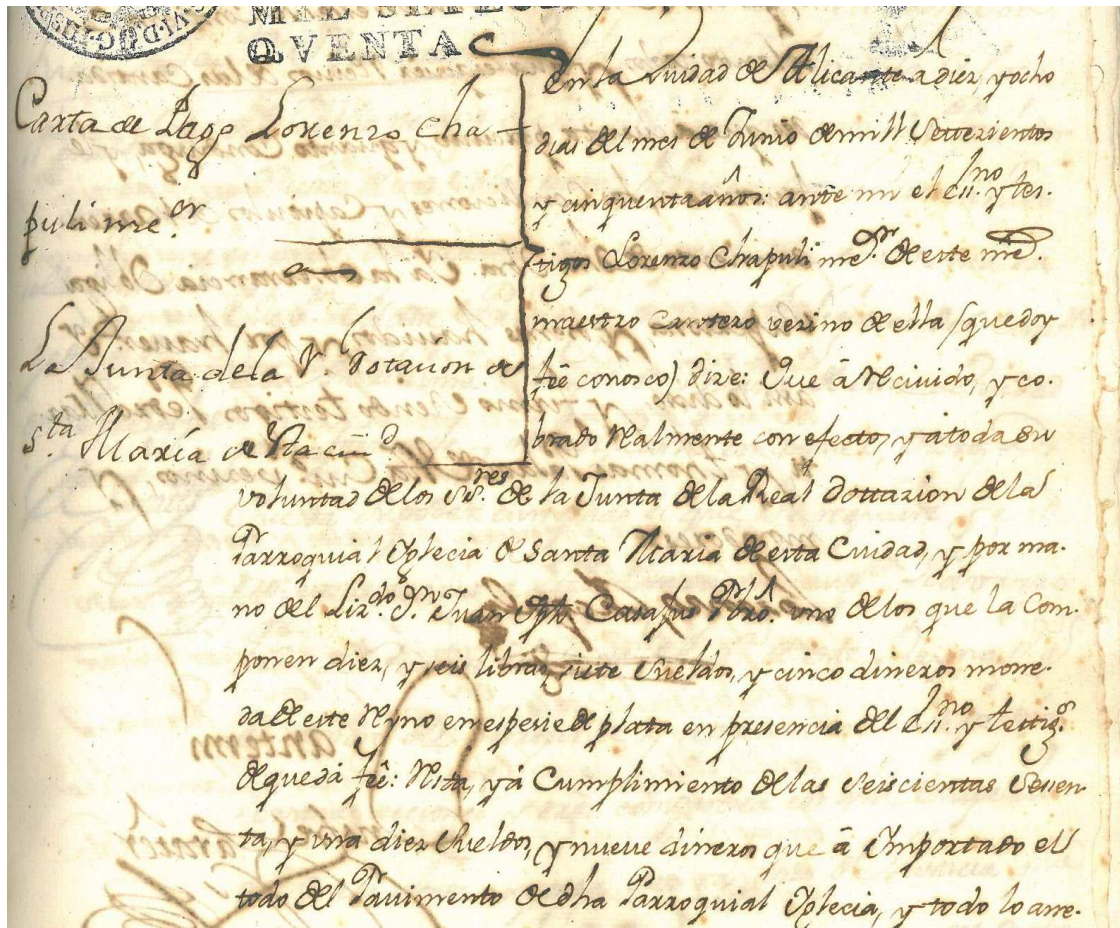 MIL SETECI
QVENTA
Carta de Pago Lorenzo Cha-
puli me.or
La Junta dela R. Dotacion de
sta. Maria de Sta ciud
en la Ciudad de Alicante a diez, y ocho
dias del mes de Junio de mill Settezientos
y cinquenta años: ante mi el Essno. y tes-
tigos Lorenzo Chapuli me.or de este
maestro cantero vezino de ella (que doy
fee conosco) dize: Que â Recivido, y co-
brado Realmente con efecto, y a toda su
voluntad de los Sres. de la Junta de la Real Dottazion de la
Parroquial Yglecia de Santa Maria de esta Ciudad, y por ma-
no del Lizdo. Dn. Juan Bpta. Casafus Pbro. uno de los que la Com-
ponen diez, y seis libras, siete Sueldos, y cinco dineros mone-
da de este Reyno en espesie de plata en presencia del Essno. y testigos
de que dá fee: Resta, y á Cumplimiento de las Seiscientas Sesen-
ta, y una diez Sueldos, y nueve dineros que â Importado el
todo del Pavimento de dha Parroquial Yglecia, y todo lo arre-